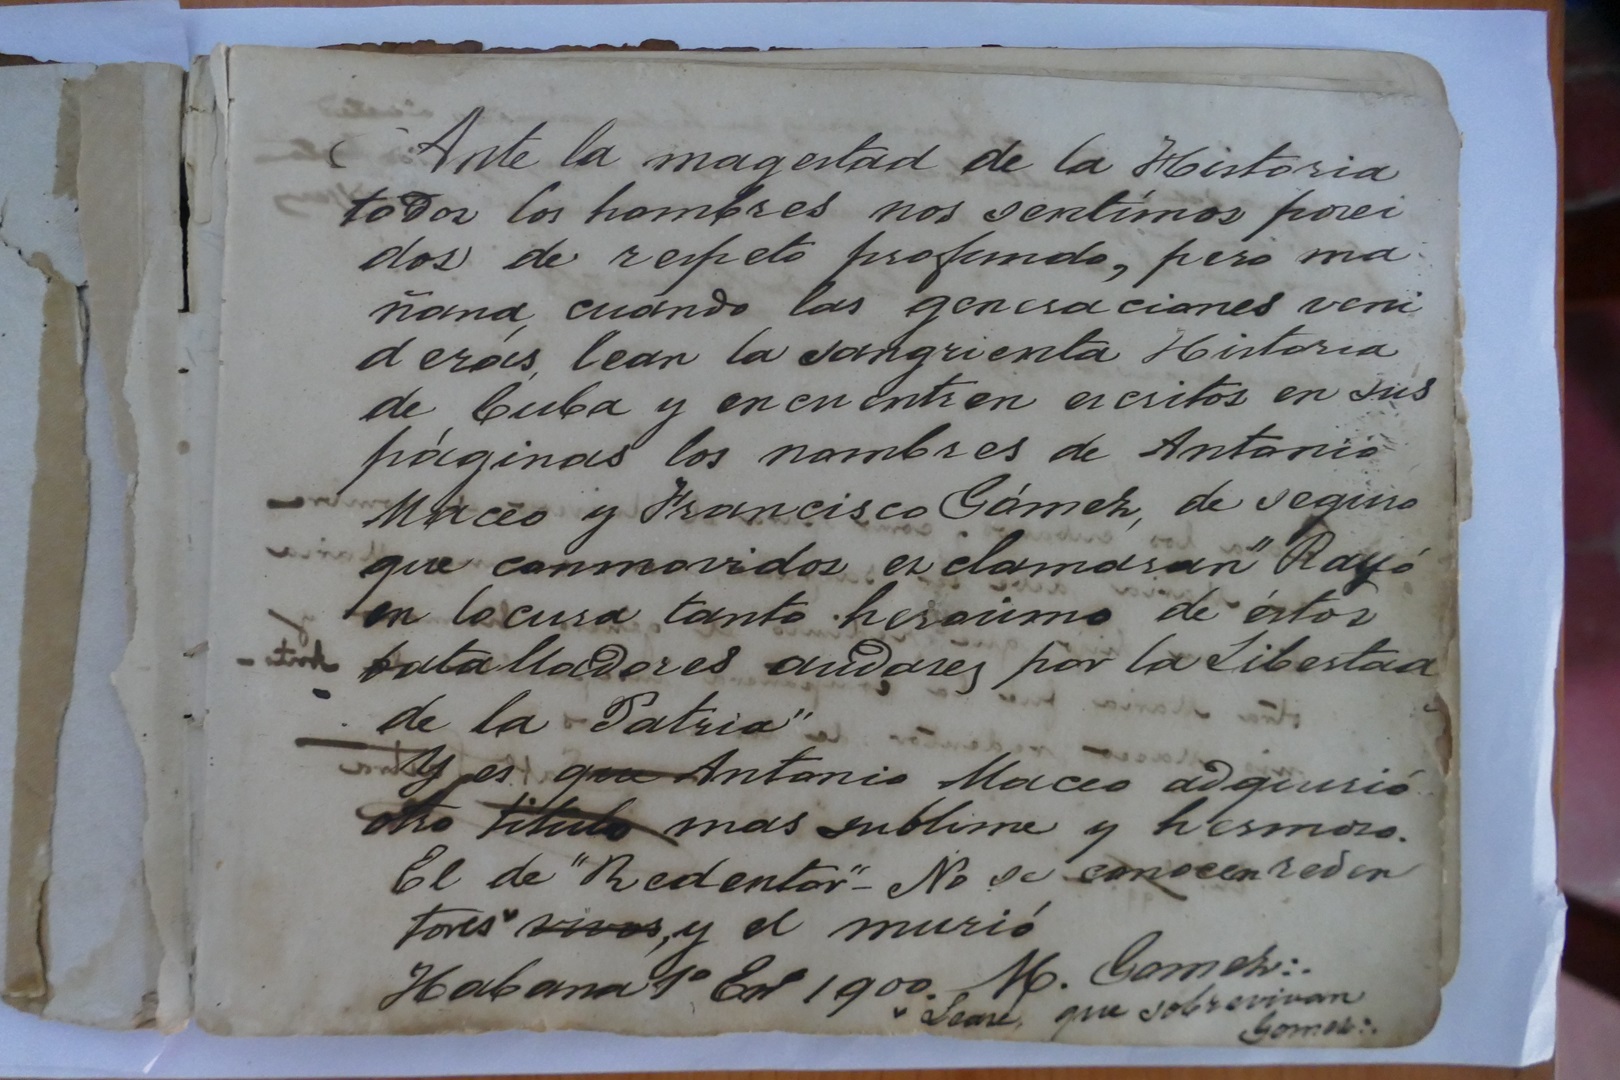 Ante la magestad de la Historia
todos los hombres nos sentimos posei
dos de respeto profundo, pero ma
ñana, cuando las generaciones veni
deras, lean la sangrienta Historia
de Cuba y encuentren escritos en sus
páginas los nombres de Antonio
Maceo y Francisco Gómez, de seguro
que conmovidos esclamaran "Rayó
en locura tanto heroismo de éstos
batalladores audares por la Libertad
de la Patria"
Y es que Antonio Maceo adquirió
otro titulo mas sublime y hermoso.
El de "Redentor" - No se conocen reden
tores vivos, y el murió
Habana 1º En 1900. M. Gomez:.
Leare, que sobrevivan
Gomez:.